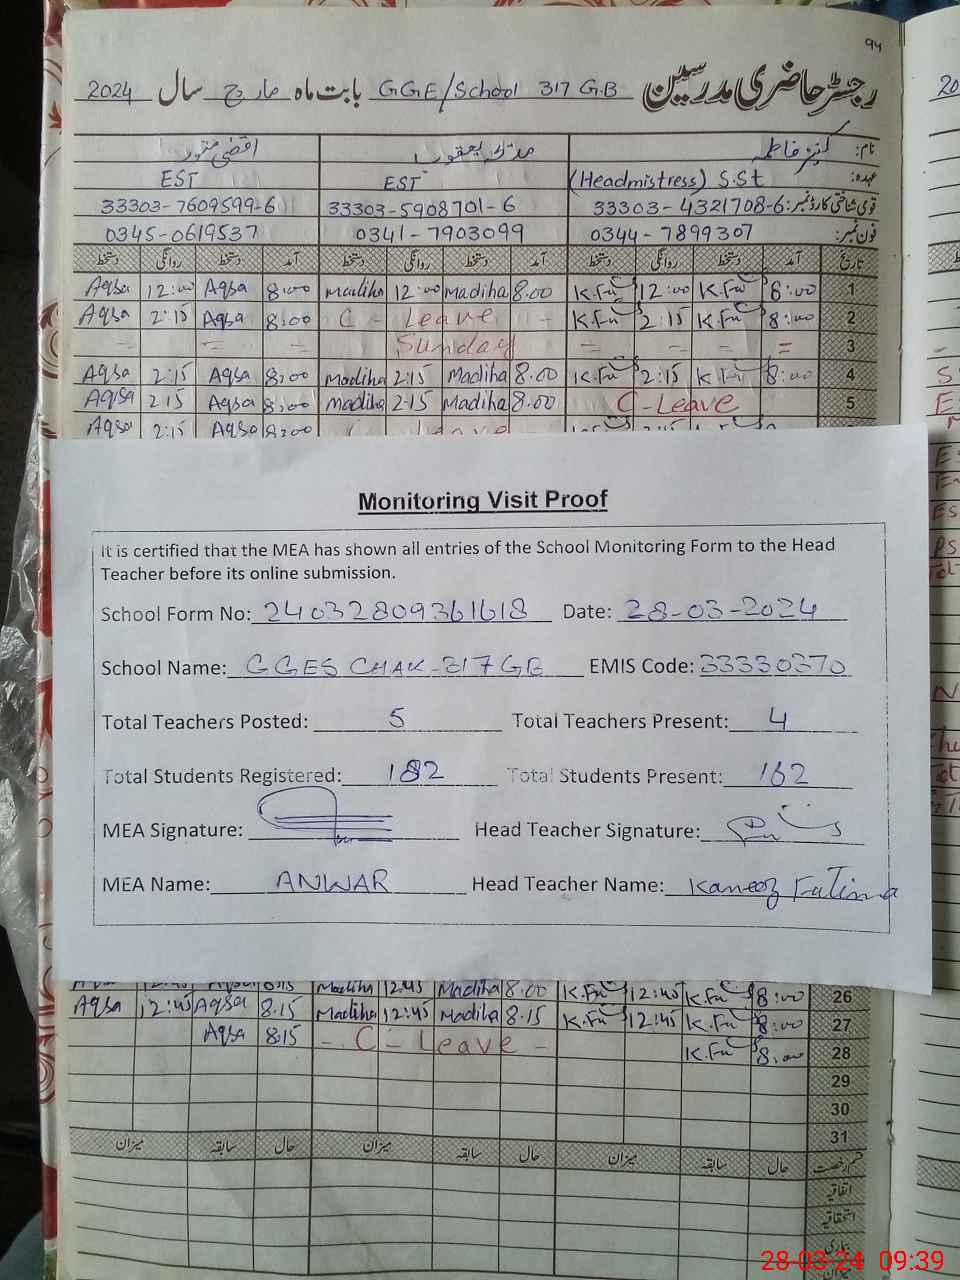 ۹۴
رجسٹر حاضری مدرسین GGE/School 317 G.B بابت ماہ مارچ سال 2024
نام: کنیز فاطمہ مدیحہ یعقوب اقصٰی منور
عہدہ: (Headmistress) S.St EST EST
قومی شناختی کارڈ نمبر: 33303-4321708-6 33303-5908701-6 33303-7609599-6
فون نمبر: 0344-7899307 0341-7903099 0345-0619537
تاریخ آمد دستخط روانگی دستخط آمد دستخط روانگی دستخط آمد دستخط روانگی دستخط
Aqsa 12:00 Aqsa 8:00 Madiha 12:00 Madiha 8.00 K.Fa 12:00 K.Fa 8:00 1
Aqsa 2:15 Aqsa 8:00 C - Leave - K.Fa 2:15 K.Fa 8:00 2
= = = Sunday = = = = 3
Aqsa 2:15 Aqsa 8:00 Madiha 2:15 Madiha 8.00 K.Fa 2:15 K.Fa 8:00 4
Aqsa 2:15 Aqsa 8:00 Madiha 2.15 Madiha 8.00 C-Leave 5
Aqsa 2:15 Aqsa 8:00 C Leave
Monitoring Visit Proof
It is certified that the MEA has shown all entries of the School Monitoring Form to the Head
Teacher before its online submission.
School Form No: 24032809361618 Date: 28-03-2024
School Name: GGES CHAK-317 GB EMIS Code: 33330370
Total Teachers Posted: 5 Total Teachers Present: 4
Total Students Registered: 182 Total Students Present: 162
MEA Signature: Head Teacher Signature:
MEA Name: ANWAR Head Teacher Name: Kaneez Fatima
Aqsa 12:45 Aqsa 8:15 Madiha 12.45 Madiha 8.00 K.Fa 12:45 K.Fa 8:00 26
Aqsa 12:45 Aqsa 8.15 Madiha 12:45 Madiha 8.15 K.Fa 12:45 K.Fa 8:00 27
Aqsa 8:15 - C - Leave - K.Fa 8:00 28
29
30
31
قسم رخصت حال سابقہ میزان حال سابقہ میزان حال سابقہ میزان
اتفاقیہ
استحقاقیہ
بیماری
میزان
28-03-24 09:39